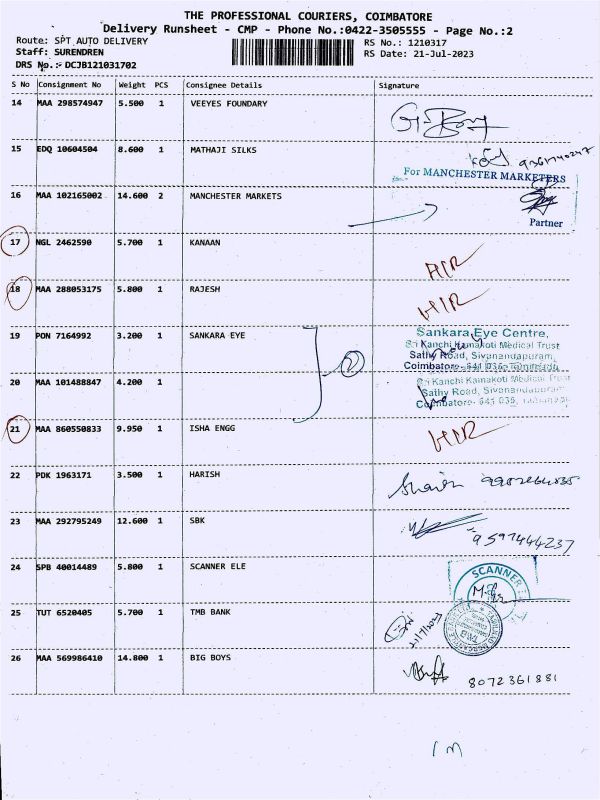 THE PROFESSIONAL COURIERS, COIMBATORE
Delivery Runsheet - CMP - Phone No.:0422-3505555 - Page No.:2
Route: SPT AUTO DELIVERY
RS No.: 1210317
Staff: SURENDREN
RS Date: 21-Jul-2023
DRS No.:- DCJB121031702
S No Consignment No Weight PCS Consignee Details Signature
14 MAA 298574947 5.500 1 VEEYES FOUNDARY
15 EDQ 10604504 8.600 1 MATHAJI SILKS
For MANCHESTER MARKETERS
16 MAA 102165002 14.600 2 MANCHESTER MARKETS
Partner
17 NGL 2462590 5.700 1 KANAAN
18 MAA 288053175 5.800 1 RAJESH
HIR
19 PON 7164992 3.200 1 SANKARA EYE
Sankara Eye Centre,
Sri Kanchi Kamakoti Medical Trust
Sathy Road, Sivanandapuram,
Coimbatore- 641 035. Tamilnadu
2
20 MAA 101488847 4.200 1
Sri Kanchi Kamakoti Medical Trust
Sathy Road, Sivanandapuram
Coimbatore- 641 035, Tamilnadu
21 MAA 860550833 9.950 1 ISHA ENGG
HIR
22 PDK 1963171 3.500 1 HARISH
23 MAA 292795249 12.600 1 SBK
9597444237
24 SPB 40014489 5.800 1 SCANNER ELE
SCANNER
25 TUT 6520405 5.700 1 TMB BANK
21/7/2023
TMB
26 MAA 569986410 14.800 1 BIG BOYS
8072361881